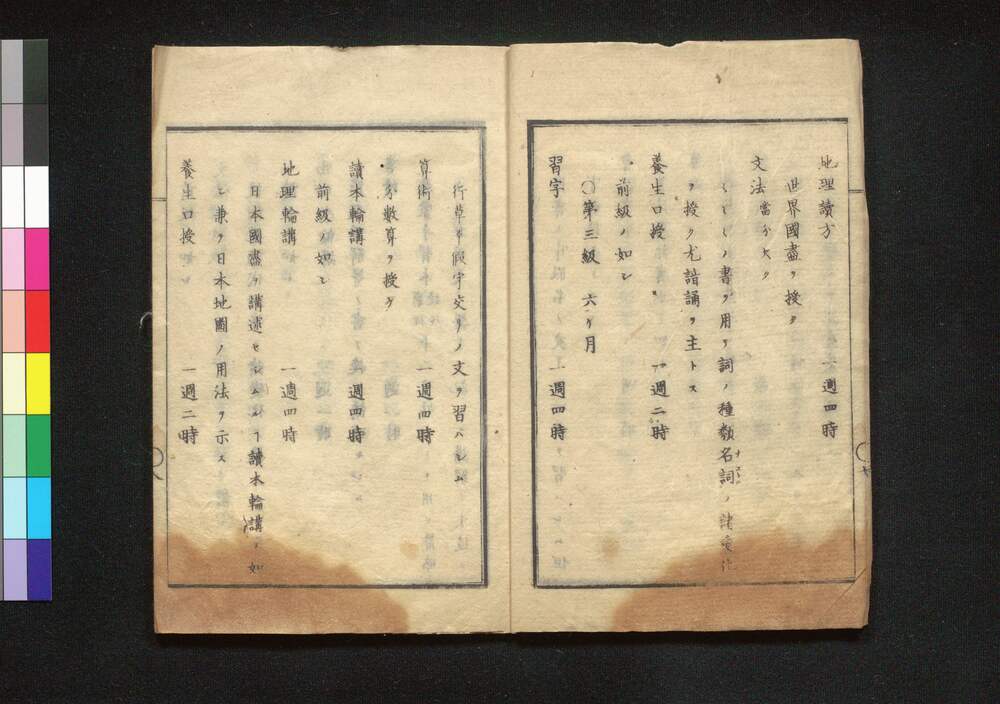 地理讀方 一週四時
世界國盡ヲ授ク
文法當分欠ク
ノ書ヲ用テ詞ノ種類名詞ノ諸變化
ヲ授ク尤諳誦ヲ主トス
養生口授 一週二時
前級ノ如シ
〇第三級 六ケ月
習字 一週四時
行草中假字交リノ文ヲ習ハシム
算術 一週四時
分數算ヲ授ク
讀本輪講 一週四時
前級ノ如シ
地理輪講 一週四時
日本國盡ヲ講述セシムルヿ讀本輪講ノ如
シ兼テ日本地圖ノ用法ヲ示ス
養生口授 一週二時